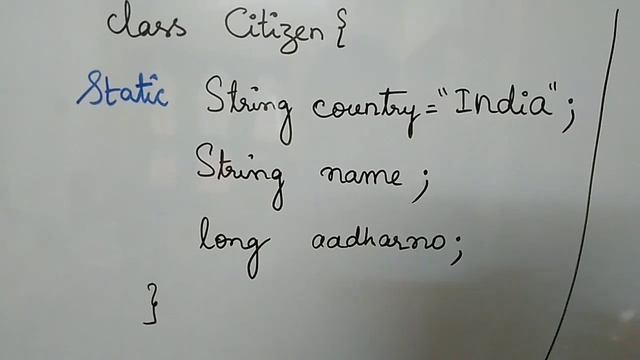 class Citizen {
Static String country = "India";
String name;
long aadharno;
}